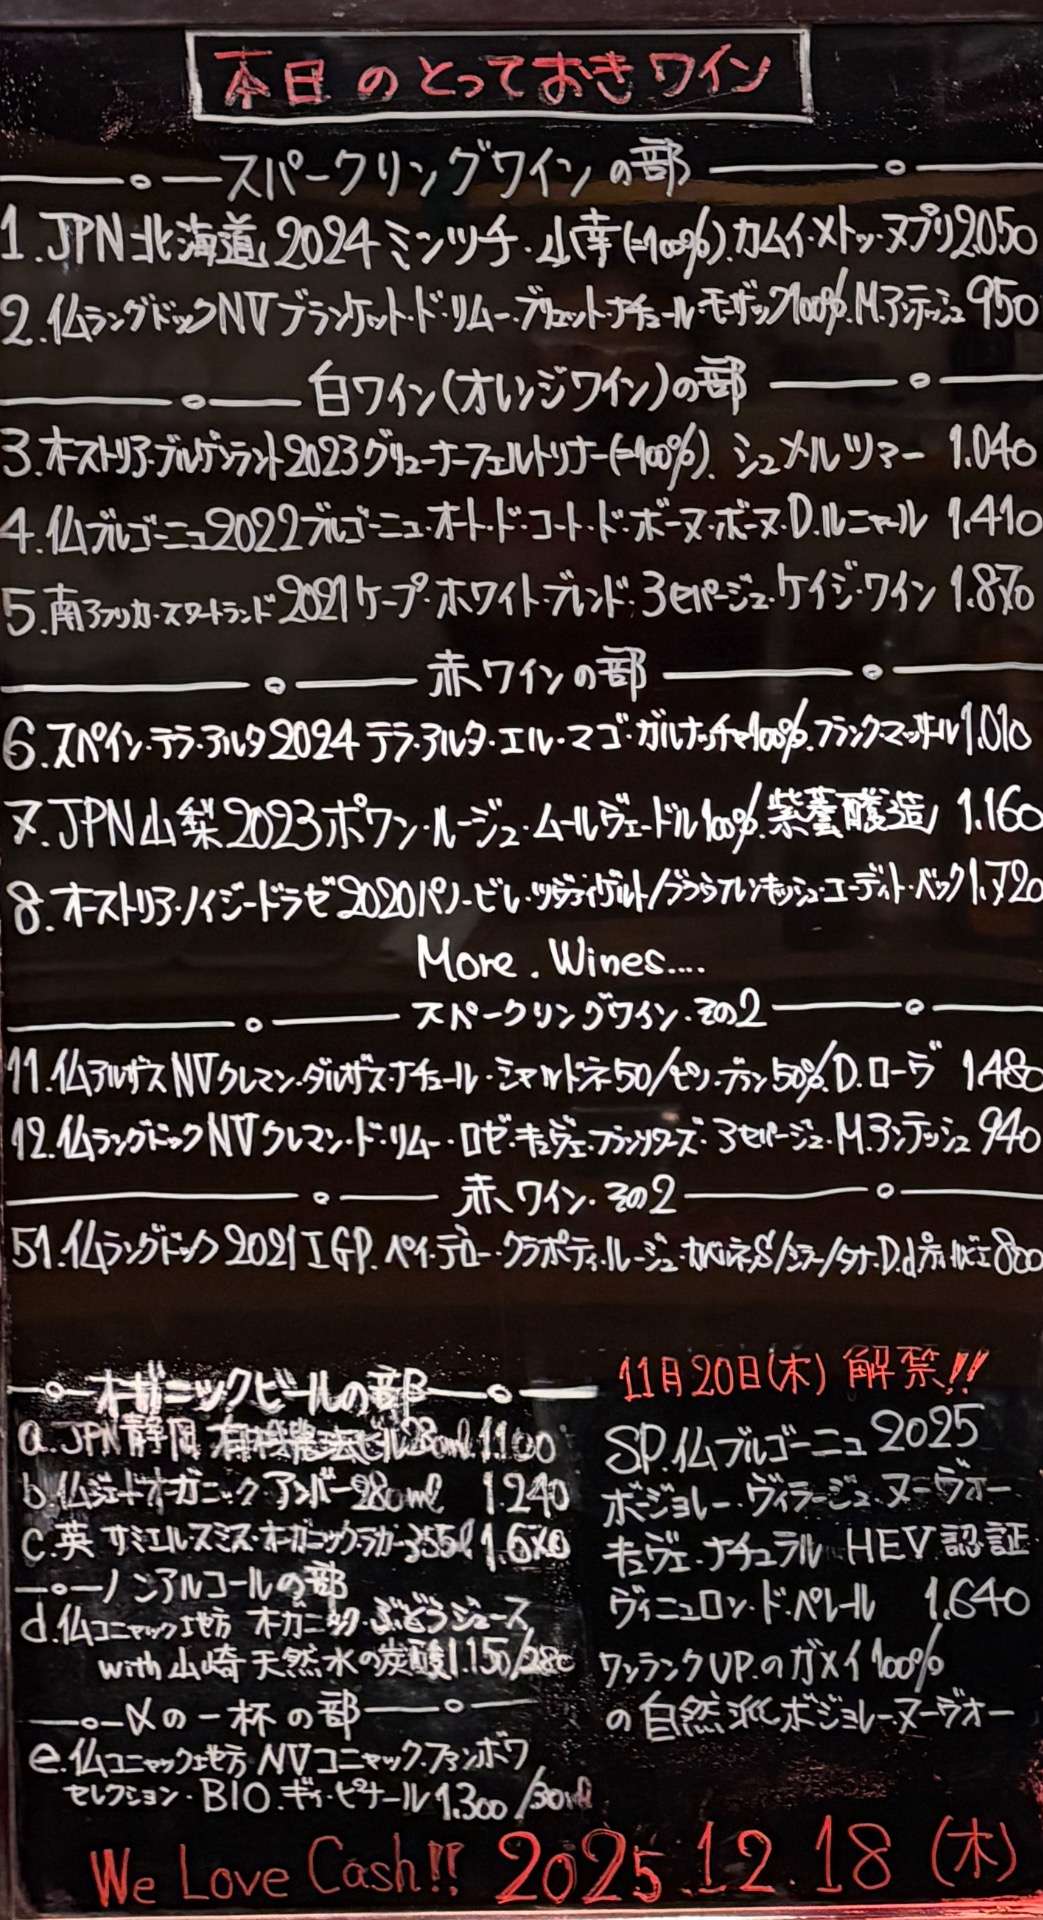 本日のとっておきワイン
スパークリングワインの部
1.JPN北海道2024ミンツチ・山幸(=100%).カムイ・メトッ・ヌプリ2.050
2.仏ラングドックNVブランケット・ド・リムー・ブリュット・ナチュール・モーザック100%.M.アンテッシュ950
白ワイン(オレンジワイン)の部
3.オーストリア・ブルゲンラント2023グリューナーフェルトリナー(=100%).シュメルツァー 1.040
4.仏ブルゴーニュ2022ブルゴーニュ・オート・ド・コート・ド・ボーヌ・ボーヌ・D.ルニャール 1.410
5.南アフリカ・スワートランド2021ケープ・ホワイト・ブレンド・3セパージュ・ケイジ・ワイン 1.870
赤ワインの部
6.スペイン・テラ・アルタ2024テラ・アルタ・エル・マゴ・ガルナッチャ100%.フランク・マッサール1.010
7.JPN山梨2023ポワン・ルージュ・ムールヴェードル100%.紫雲醸造 1.160
8.オーストリア・ノイジードラゼ2020パノービレ・ツヴァイゲルト/ブラウフレンキッシュ・ユーディト・ベック1.720
More.Wines....
スパークリングワイン.その2
11.仏アルザスNVクレマン・ダルザス・ナチュール・シャルドネ50/ピノ・ブラン50%.D.ローヴ 1.480
12.仏ラングドックNVクレマン・ド・リムー・ロゼ・キュヴェ・フランソワーズ・3セパージュ・M.アンテッシュ 940
赤ワイン.その2
51.仏ラングドック2021IGP.ペイ・デロー・クラポティ・ルージュ・カベルネS/シラー/タナ・D.d 800
オーガニックビールの部
a.JPN静岡 有機農法ビール 1.100
b.仏ジェードオーガニック アンバー280ml 1.240
c.英 サミエルスミス・オーガニックラガー355ml 1.6
ノンアルコールの部
d.仏コニャック地方 オーガニック・ぶどうジュース
with山崎天然水の炭酸1.150/280
〆の一杯の部
e.仏コニャック地方 NVコニャック・ファンボワ
セレクション・BIO.ギィ・ピナール1.300/30ml
11月20日(木) 解禁!!
SP.仏ブルゴーニュ 2025
ボージョレー・ヴィラージュ・ヌーヴォー
キュヴェ・ナチュラル HEV認証
ヴィニュロン・ド・ベレール 1.640
ワンランクUP.のガメイ100%
の自然派ボジョレーヌーヴォー
We Love Cash!! 2025.12.18 (木)